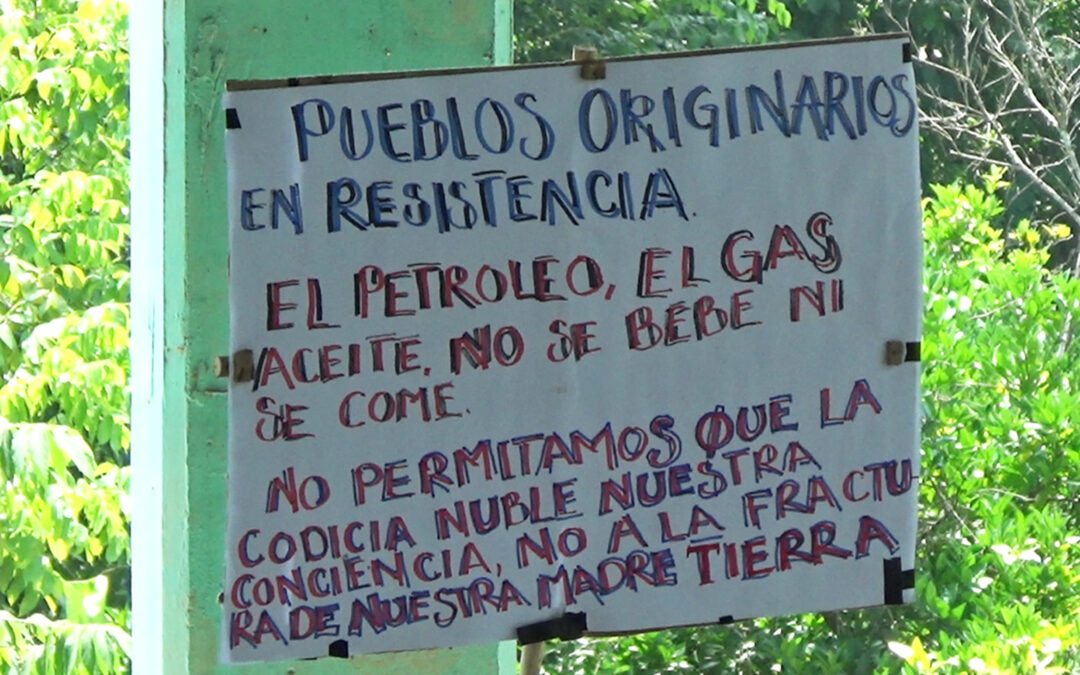 PUEBLOS ORIGINARIOS
EN RESISTENCIA.
EL PETROLEO, EL GAS
ACEITE, NO SE BEBE NI
SE COME.
NO PERMITAMOS QUE LA
CODICIA NUBLE NUESTRA
CONCIENCIA, NO A LA FRACTU-
RA DE NUESTRA MADRE TIERRA